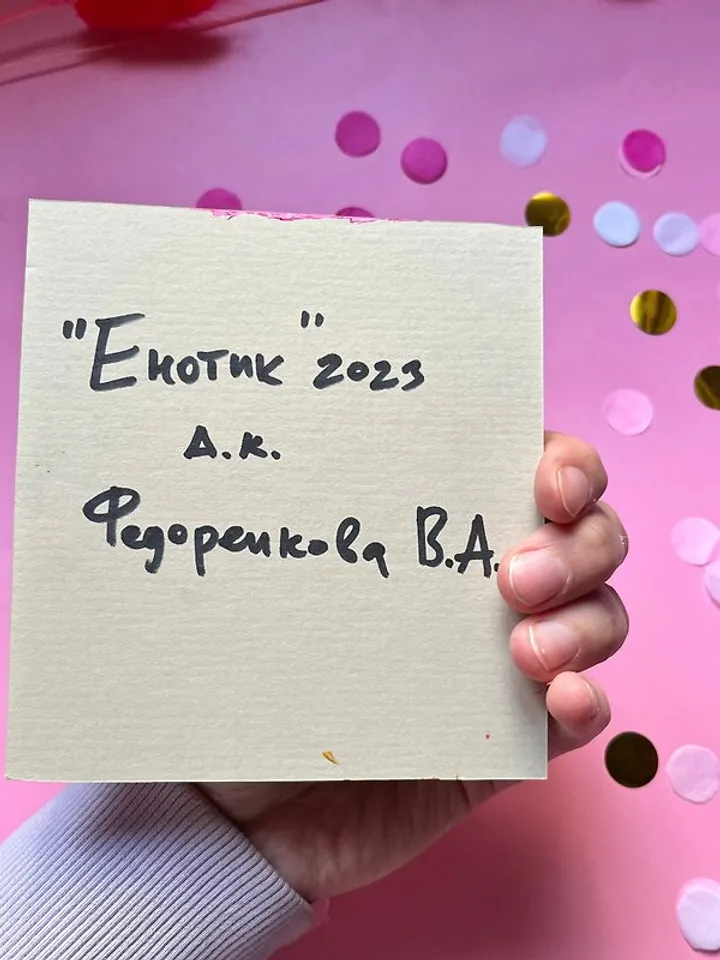 "Енотик" 2023
д.к.
Федоренкова В.А.